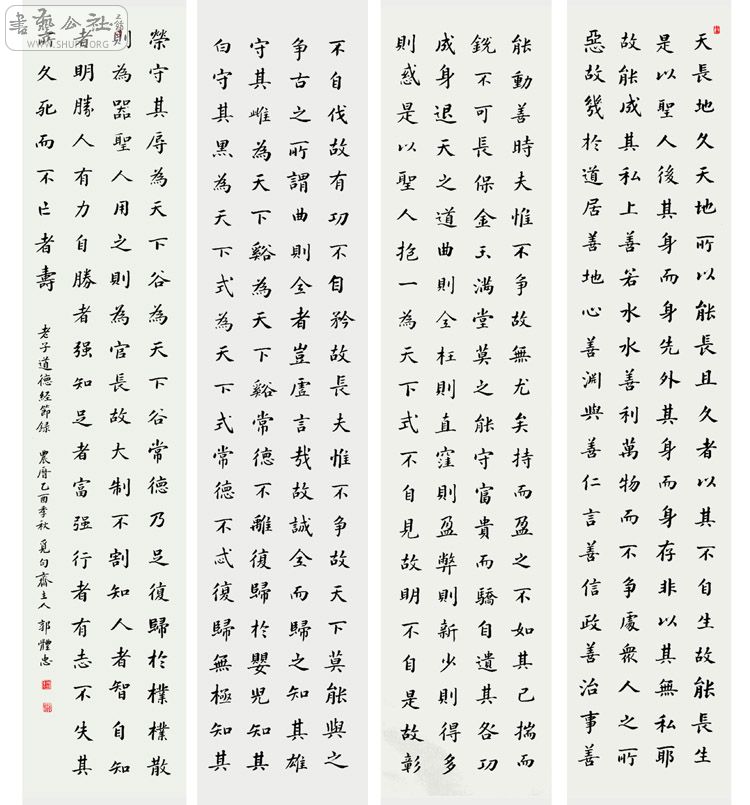 天長地久天地所以能長且久者以其不自生故能長生
是以聖人後其身而身先外其身而身存非以其無私耶
故能成其私上善若水水善利萬物而不争處衆人之所
惡故幾於道居善地心善渊與善仁言善信政善治事善
能動善時夫惟不争故無尤矣持而盈之不如其已揣而
銳不可長保金玉滿堂莫之能守富貴而驕自遺其咎功
成身退天之道曲則全枉則直窪則盈弊則新少則得多
則惑是以聖人抱一為天下式不自見故明不自是故彰
不自伐故有功不自矜故長夫惟不争故天下莫能與之
争古之所謂曲則全者豈虛言哉故誠全而歸之知其雄
守其雌為天下谿為天下谿常德不離復歸於嬰兒知其
白守其黑為天下式為天下式常德不忒復歸無極知其
榮守其辱為天下谷為天下谷常德乃足復歸於樸樸散
則為器聖人用之則為官長故大制不割知人者智自知
者明勝人有力自勝者强知足者富强行者有志不失其
所久死而不亡者壽 老子道德經節錄 農曆乙酉季秋 覓句齋主人 郭體忠
書藝公社